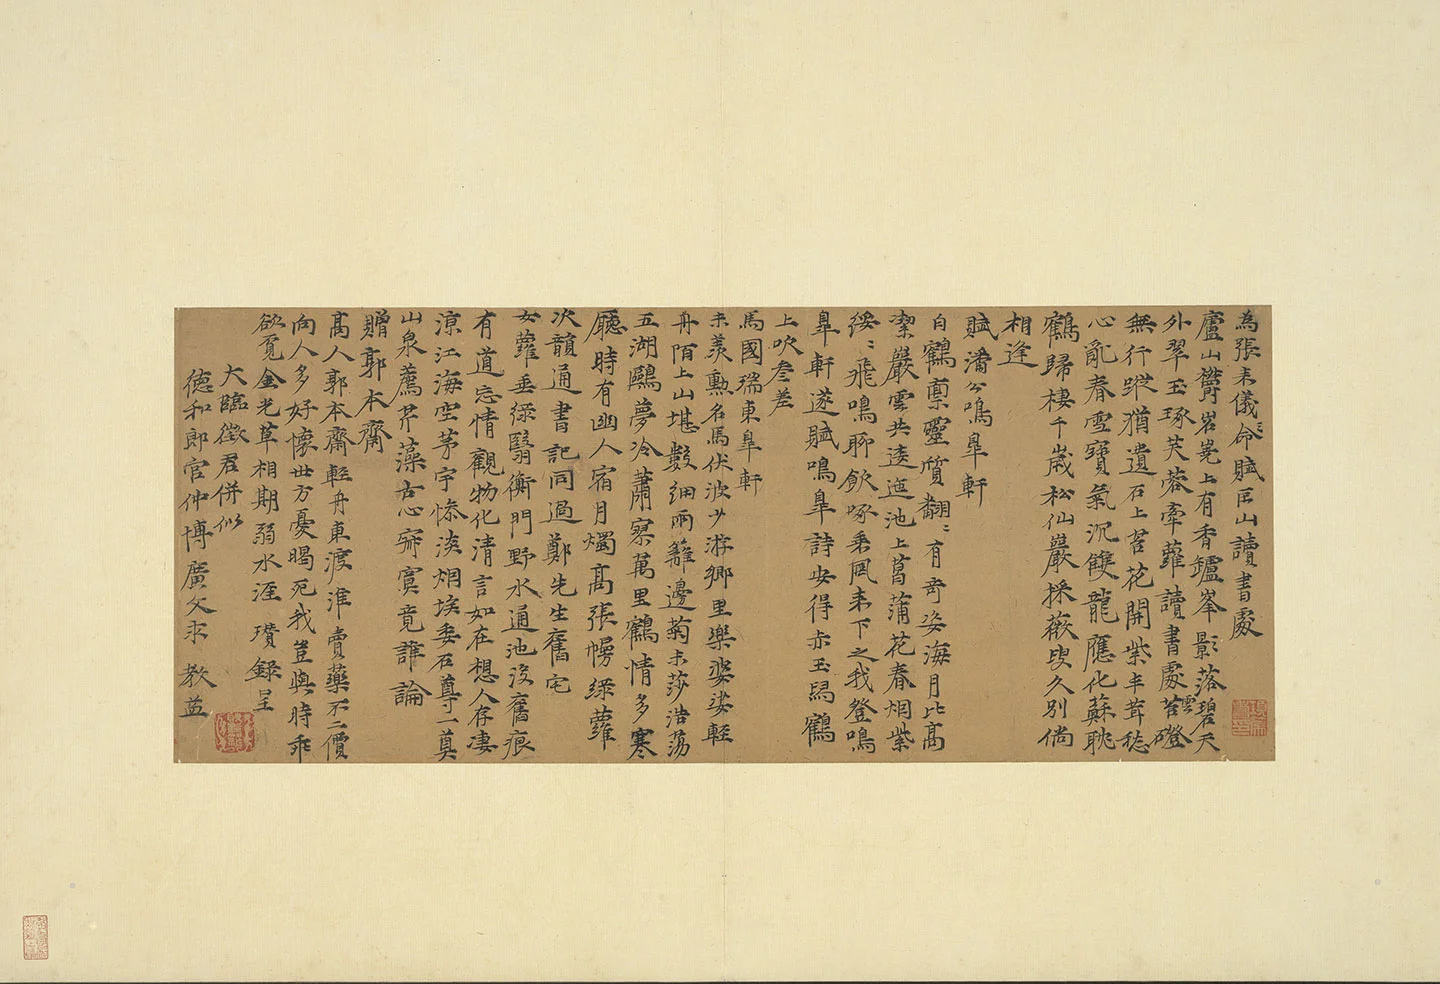 為張來儀命賦匡山讀書處
廬山鬱岧嶤上有香鑪峯影落碧天
外翠玉琢芙蓉牽蘿讀書處雲磴
無行蹤猶遺石上苔花開紫丰茸嵇
心亂春雪寶氣沉雙龍應化蘇耽
鶴歸棲千歲松仙巖採薇叟久別倘
相逢
賦潘公鳴皐軒
白鶴稟靈質翩〻有奇姿海月比高
潔巖雲共逶迤池上菖蒲花春烟紫
綏〻飛鳴聊飲啄乘風來下之我登鳴
皐軒遂賦鳴皐詩安得赤玉舄鶴
上吹參差
馬國瑞東皐軒
未羨勲名馬伏波少游鄉里樂婆娑輕
舟陌上山堪數細雨籬邊菊未莎浩蕩
五湖鷗夢冷蕭寥萬里鶴情多寒
廳時有幽人宿月燭高張幔綠蘿
次韻通書記同過鄭先生舊宅
女蘿垂綠翳衡門野水通池沒舊痕
有道忘情觀物化清言如在想人存淒
涼江海空茅宇慘淡烟埃委石尊一奠
山泉薦芹藻古心寂寞竟誰論
贈郭本齋
高人郭本齋輕舟東渡淮賣藥不二價
向人多好懷世方憂暍死我豈與時乖
欲覓金光草相期弱水涯 瓚錄呈
大臨徵君併似
德和郎官仲博廣文求 教益